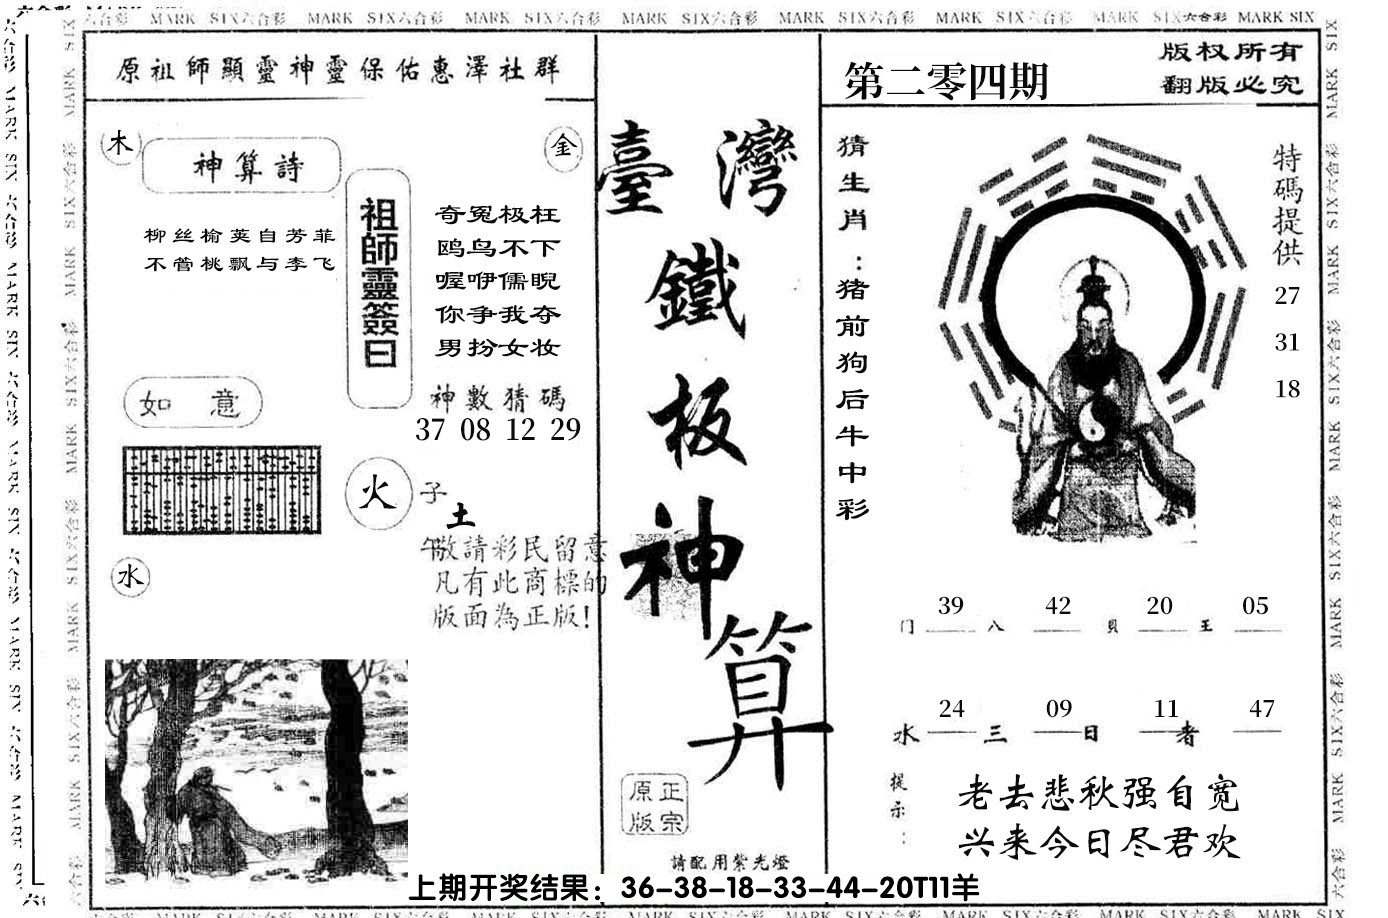 MARK SIX六合彩 MARK SIX六合彩 MARK SIX六合彩 MARK SIX六合彩 MARK SIX六合彩 MARK SIX六合彩 MARK SIX六合彩 MARK SIX
原祖師顯靈神靈保佑惠澤社群
木
神算詩
金
柳丝榆荚自芳菲
不管桃飘与李飞
祖師靈簽曰
奇冤极枉
鸥鸟不下
喔咿儒睨
你争我夺
男扮女妆
神數猜碼
37 08 12 29
如意
火
子
土
午
敬請彩民留意
凡有此商標的
版面為正版!
水
臺灣
鐵
板
神
算
正宗
原版
請配用紫光燈
第二零四期
版权所有
翻版必究
猜生肖:猪前狗后牛中彩
特碼提供
27
31
18
39 42 20 05
门 八 贝 王
24 09 11 47
水 三 日 者
提示:
老去悲秋强自宽
兴来今日尽君欢
上期开奖结果：36-38-18-33-44-20T11羊